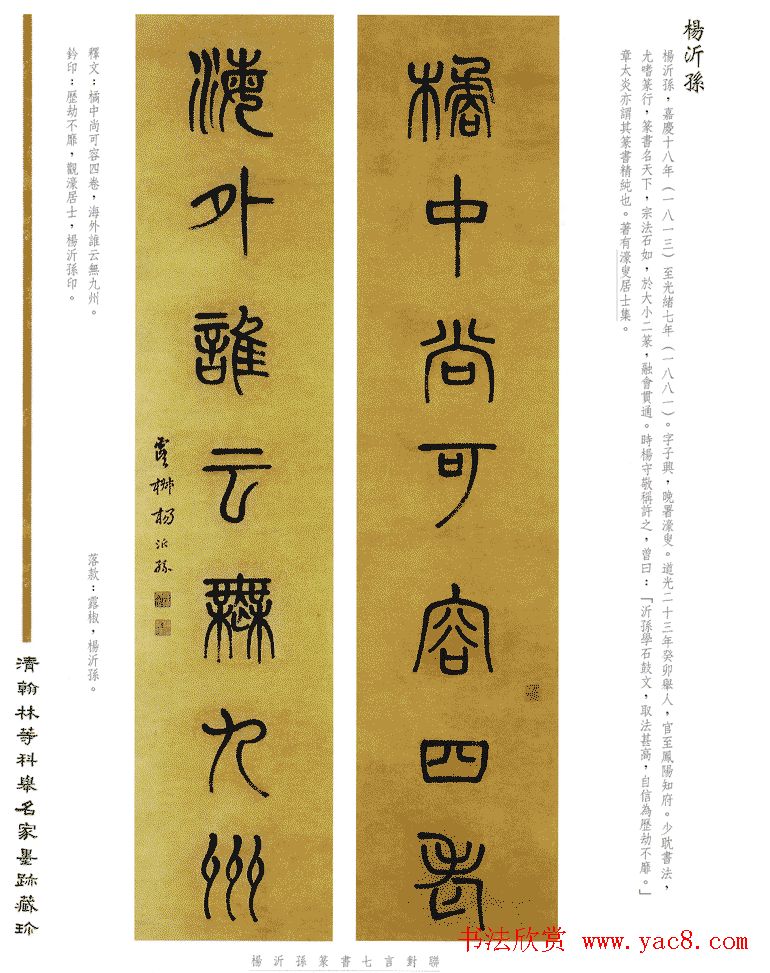 楊沂孫
楊沂孫，嘉慶十八年（一八一三）至光緒七年（一八八一）。字子興，晚署濠叟。道光二十三年癸卯舉人，官至鳳陽知府。少耽書法，
尤嗜篆行，篆書名天下，宗法石如，於大小二篆，融會貫通。時楊守敬稱許之，曾曰：「沂孫學石鼓文，取法甚高，自信為歷劫不靡。」
章太炎亦謂其篆書精純也。著有濠叟居士集。
橘中尚可容四老
海外誰云無九州
楊沂孫
釋文：橘中尚可容四卷，海外誰云無九州。
落款：露椒，楊沂孫。
鈐印：歷劫不靡，觀濠居士，楊沂孫印。
清翰林等科舉名家墨跡藏珍
楊沂孫篆書七言對聯
书法欣赏 www.yac8.com